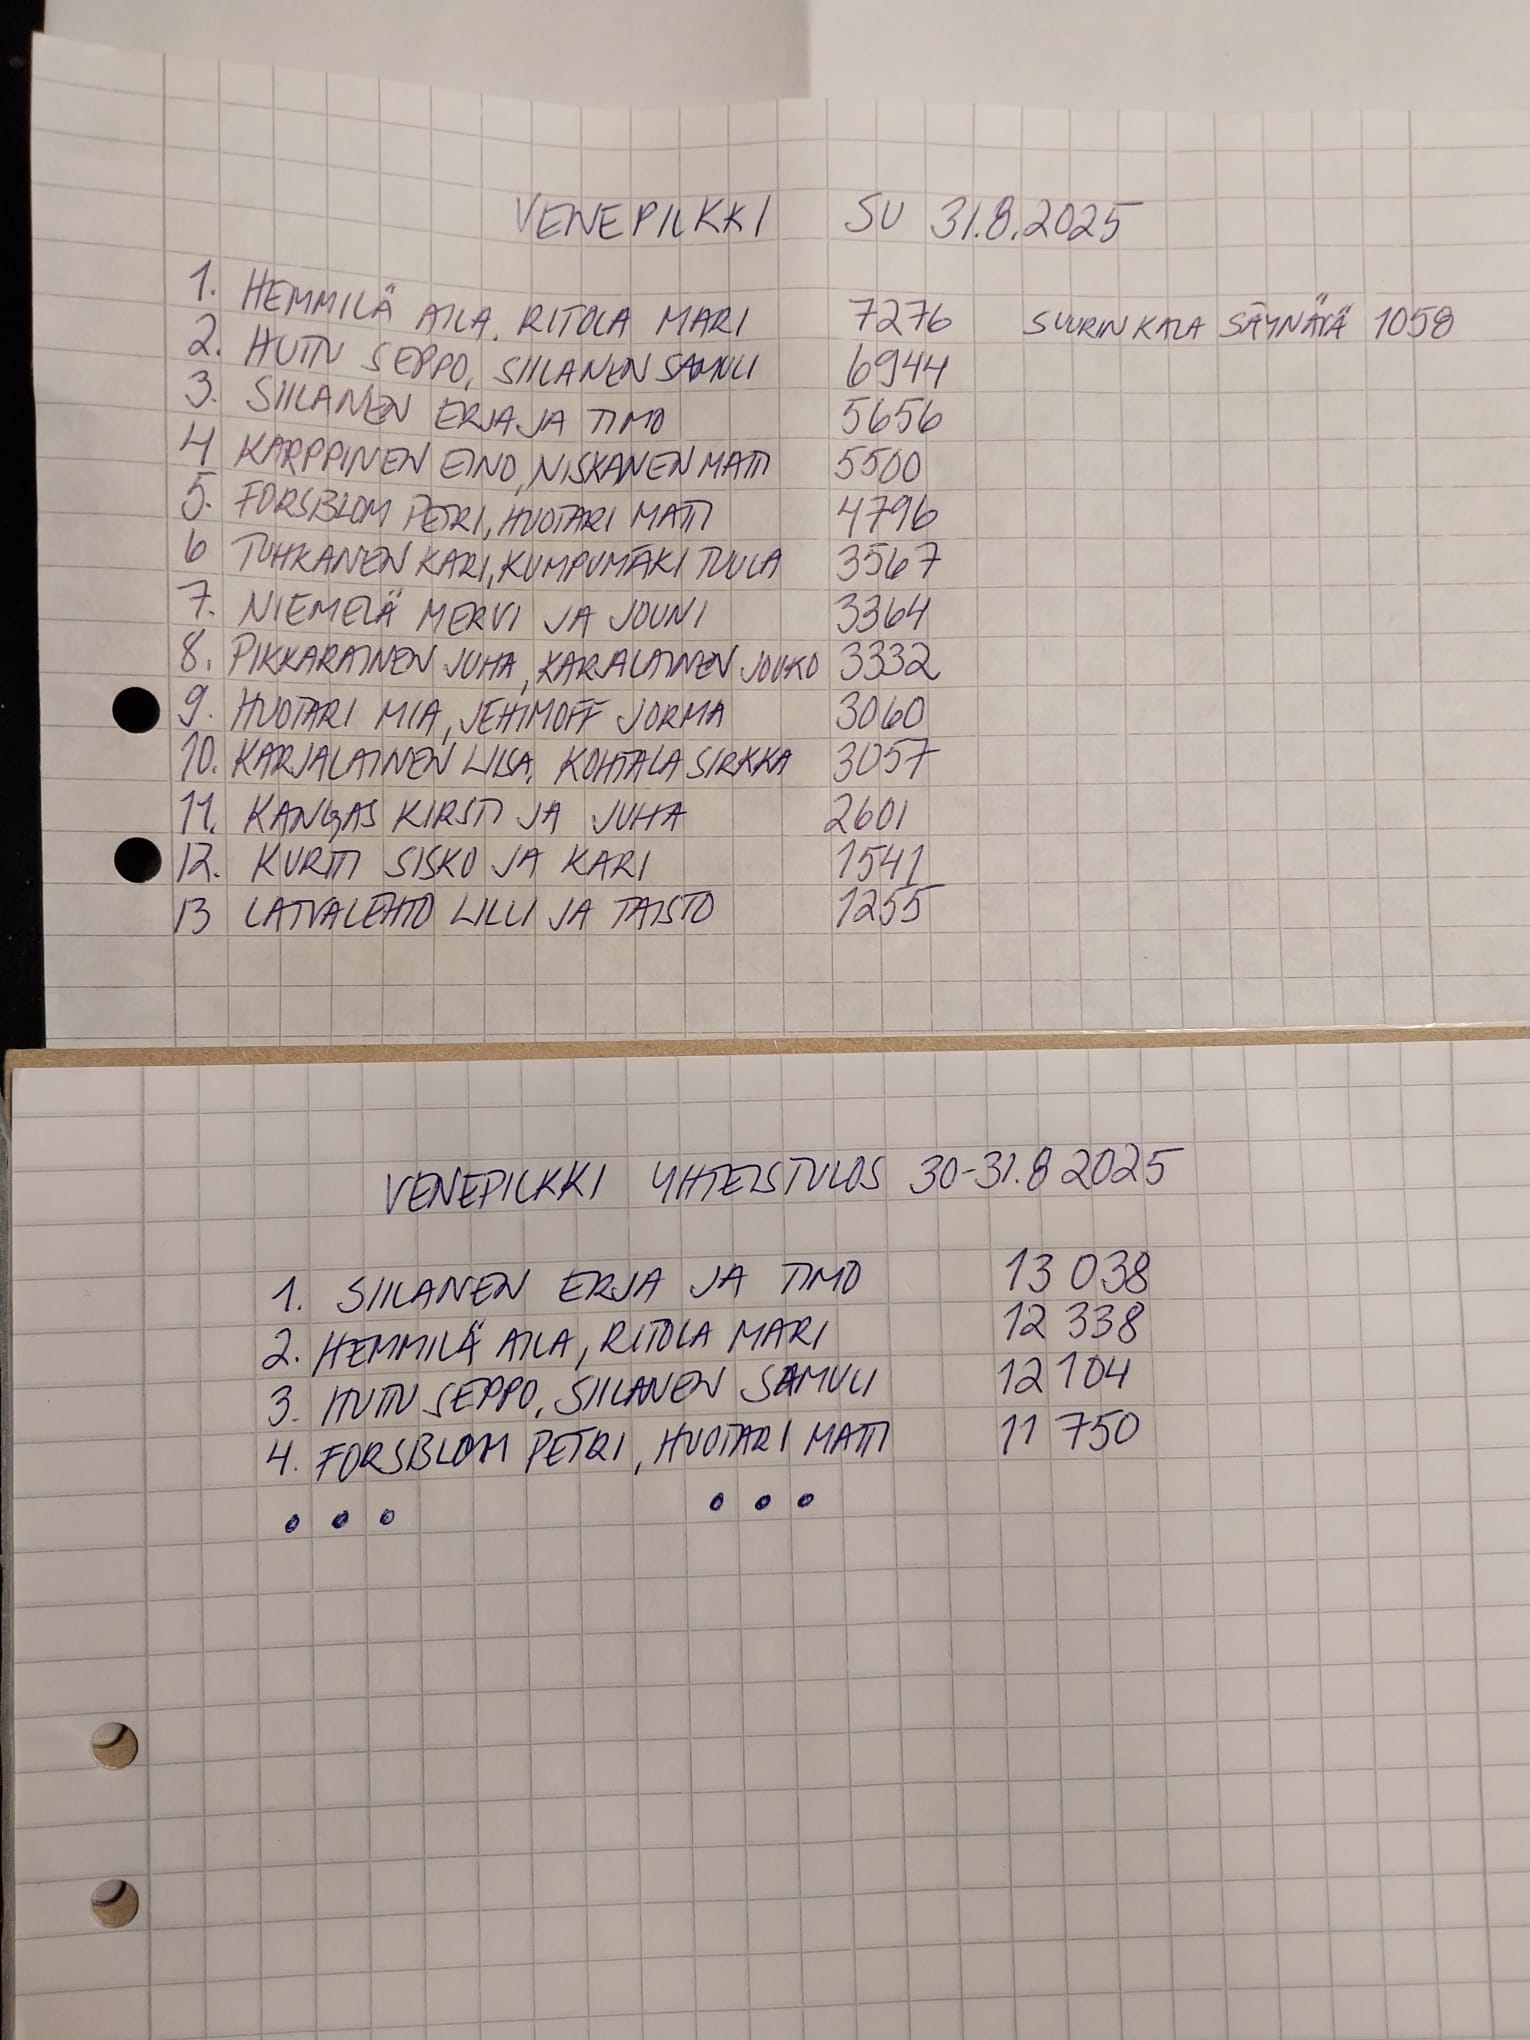 VENEPILKKI SU 31.8.2025
1. HEMMILÄ AILA, RITOLA MARI 7276 SUURIN KALA SÄYNÄVÄ 1058
2. HUTTU SEPPO, SIILANEN SAMULI 6944
3. SIILANEN ERJA JA TIMO 5656
4 KARPPINEN EINO, NISKANEN MATTI 5500
5. FORSBLOM PETRI, HUOTARI MATTI 4796
6 TUHKANEN KARI, KUMPUMÄKI TUULA 3567
7. NIEMELÄ MERVI JA JOUNI 3364
8. PIKKARAINEN JUHA, KARJALAINEN JOUKO 3332
9. HUOTARI MIA, JEHIMOFF JORMA 3060
10. KARJALAINEN LIISA, KOHTALA SIRKKA 3057
11. KANGAS KIRSTI JA JUHA 2601
12. KURTTI SISKO JA KARI 1541
13 LATVALEHTO LILLI JA TAISTO 1255
VENEPILKKI YHTEISTULOS 30-31.8 2025
1. SIILANEN ERJA JA TIMO 13 038
2. HEMMILÄ AILA, RITOLA MARI 12 338
3. HUTTU SEPPO, SIILANEN SAMULI 12 104
4. FORSBLOM PETRI, HUOTARI MATTI 11 750
... ...